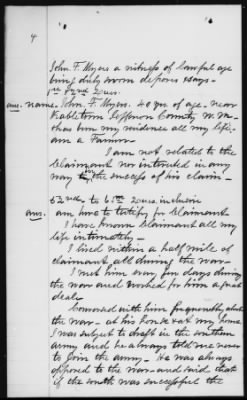 4
John F. Myers a witness of lawful age
being duly sworn deposes & says -
1st & 2nd Inter:
ans. name John F. Myers. 40 yrs of age. near
Kabletown Jefferson County W. Va.
has been my residence all my life.
am a Farmer -
I am not related to the
Claimant nor interested in any
way in the success of his claim -
52nd to 61st Inter. inclusive
ans. am here to testify for Claimant.
I have known Claimant all my
life intimately -
I lived within a half mile of
claimant all during the war -
I met him every few days during
the war and worked for him a great
deal -
Conversed with him frequently about
the war - at his house & at my home
I was subject to draft in the southern
army and he always told me never
to join the army - He was always
opposed to the war and said that
if the south was successful the